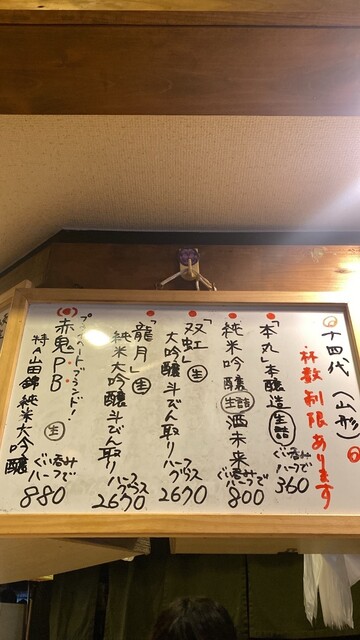 十四代（山形）
杯数制限あります
「本丸」本醸造 生詰
ぐい呑み
ハーフで
360
純米吟醸 生詰 酒未来
ぐい呑み
ハーフで
800
「双虹」生
大吟醸斗びん取り
ハーフ
グラス
2670
「龍月」生
純米大吟醸斗びん取り
ハーフ
グラス
2670
プライベートブランド！
赤鬼PB 生
特A山田錦 純米大吟醸
ぐい呑み
ハーフで
880